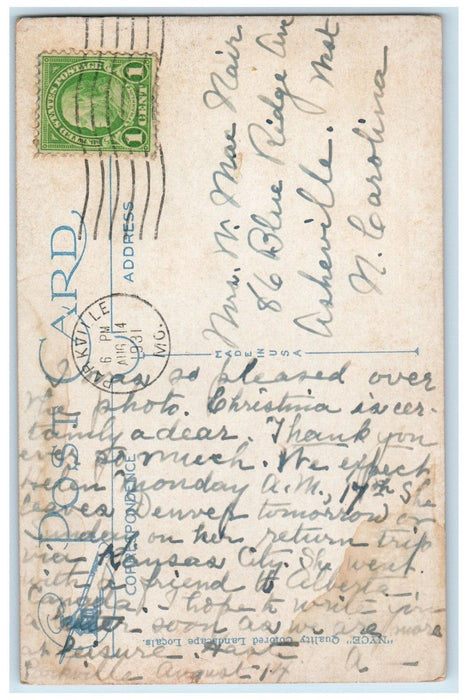 UNITED STATES POSTAGE
1 CENT 1
POST CARD
PARKVILLE
6 PM
AUG 14
1931
MO.
ADDRESS
Mrs. W. Mac Nair
86 Blue Ridge Ave
Asheville. West
N. Carolina
MADE IN U.S.A.
CORRESPONDENCE
I was so pleased over
the photo. Christina is cer-
tainly a dear. Thank you
ever so much. We expect
Helen Monday A.M., 17th. She
leaves Denver tomorrow or
Sunday on her return trip
via Kansas City. She went
with a friend to Alberta
Canada. I hope to write you
a letter soon as we are more
at leisure.
Parkville August 14
"NYCE" Quality Colored Landscape Locals